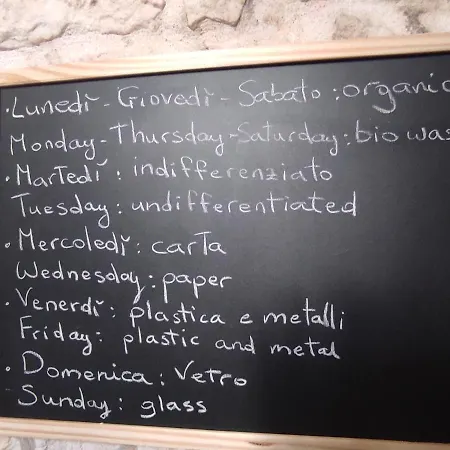 · Lunedì - Giovedì - Sabato : organic
Monday - Thursday - Saturday : bio was
· Martedí : indifferenziato
Tuesday : undifferentiated
· Mercoledì : carta
Wednesday : paper
· Venerdì : plastica e metalli
Friday : plastic and metal
· Domenica : Vetro
Sunday : glass